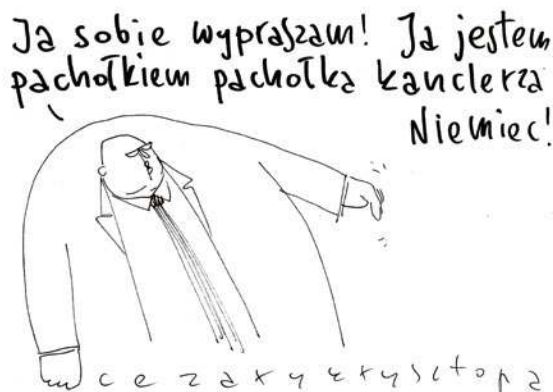 Ja sobie wypraszam! Ja jestem
pachołkiem pachołka kanclerza
Niemiec!
cezarykrysztopa